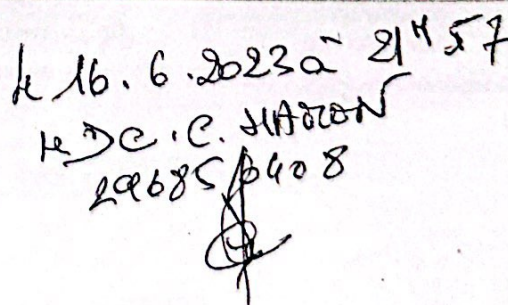 le 16.6.2023 à 21H57
le DC.C. HAMON
2968510408